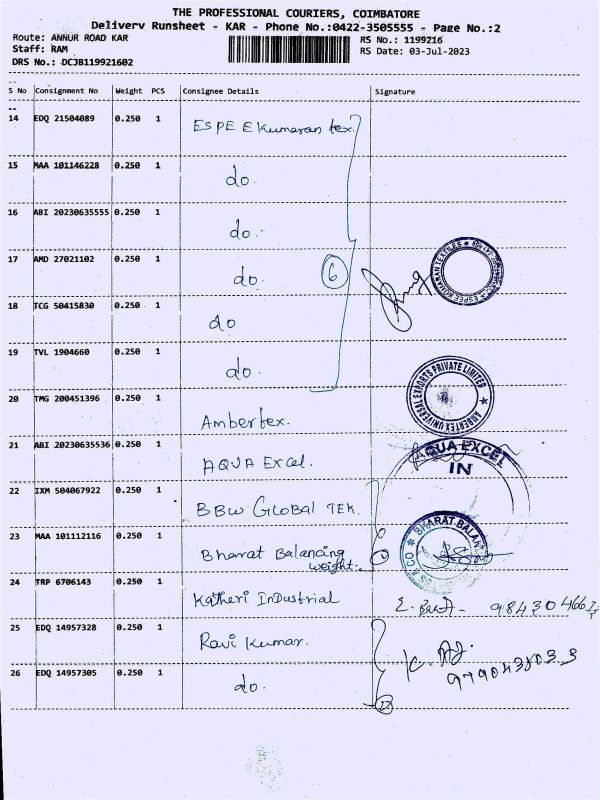 THE PROFESSIONAL COURIERS, COIMBATORE
Delivery Runsheet - KAR - Phone No.:0422-3505555 - Page No.:2
Route: ANNUR ROAD KAR
Staff: RAM
DRS No.: DCJB119921602
RS No.: 1199216
RS Date: 03-Jul-2023
S No Consignment No Weight PCS Consignee Details Signature
14 EDQ 21504089 0.250 1 ESPEE Kumaran tex.
15 MAA 101146228 0.250 1 do.
16 ABI 20230635555 0.250 1 do.
17 AMD 27021102 0.250 1 do. 6
ESPEE KUMARAN TEXTILES
18 TCG 50415830 0.250 1 do
19 TVL 1904660 0.250 1 do.
20 TMG 200451396 0.250 1 Ambertex.
AMBERTEX UNIVERSAL EXPORTS PRIVATE LIMITED
21 ABI 20230635536 0.250 1 AQUA Excel.
AQUA EXCEL
IN
22 IXM 504067922 0.250 1 BBW GLOBAL TEK.
23 MAA 101112116 0.250 1 Bharat Balancing
weight.
BHARAT BALAN
ES & CO
24 TRP 6706143 0.250 1 Katheri Industrial
25 EDQ 14957328 0.250 1 Ravi Kumar.
26 EDQ 14957305 0.250 1 do.